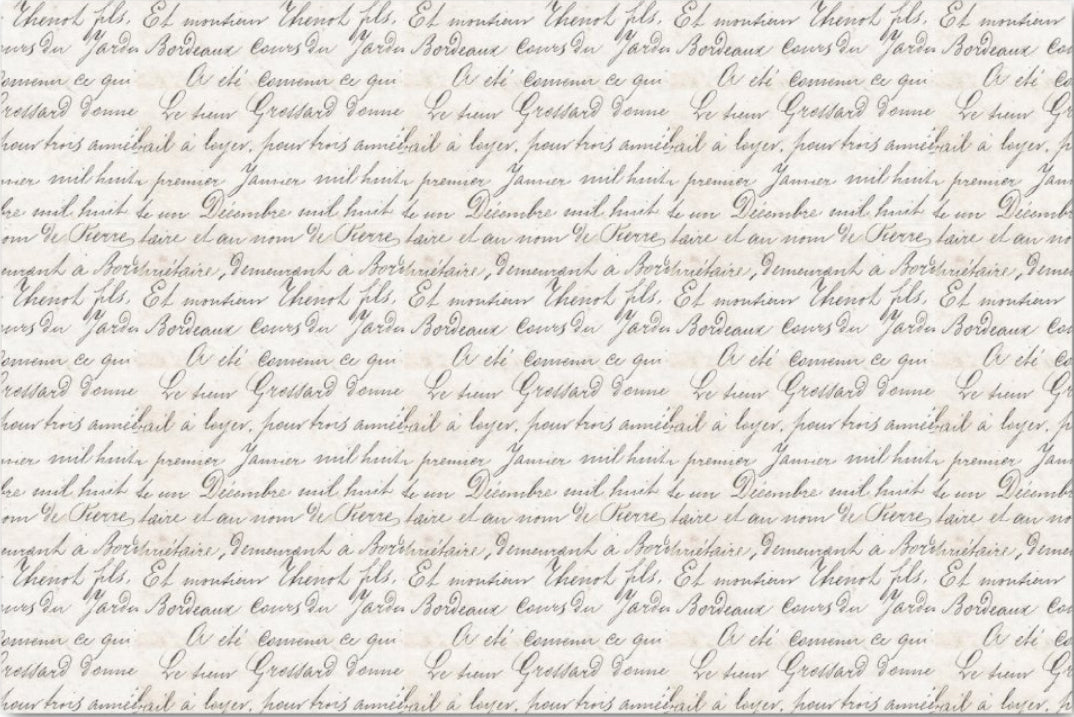 Thenot fils. Et montieur Thenot fils. Et montieur Thenot fils. Et montieur Thenot fils. Et montieur
du Jardu Bordeaux Cours du Jardu Bordeaux Cours du Jardu Bordeaux Cours du Jardu Bordeaux
ce qui A été convenu ce qui A été convenu ce qui A été convenu ce qui A été
donne Le sieur Grossard donne Le sieur Grossard donne Le sieur Grossard donne Le sieur
pour trois anné bail à loyer, pour trois anné bail à loyer, pour trois anné bail à loyer, pour trois anné bail à loyer,
mil huit premier Janvier mil huit premier Janvier mil huit premier Janvier mil huit premier
mil huit te un Décembre mil huit te un Décembre mil huit te un Décembre mil huit te un
de Pierre, taire et au nom de Pierre, taire et au nom de Pierre, taire et au nom de Pierre, taire et au
à Bor priétaire, demeurant à Bor priétaire, demeurant à Bor priétaire, demeurant à Bor priétaire,
Thenot fils. Et montieur Thenot fils. Et montieur Thenot fils. Et montieur Thenot fils. Et montieur
du Jardu Bordeaux Cours du Jardu Bordeaux Cours du Jardu Bordeaux Cours du Jardu Bordeaux
ce qui A été convenu ce qui A été convenu ce qui A été convenu ce qui A été
donne Le sieur Grossard donne Le sieur Grossard donne Le sieur Grossard donne Le sieur
pour trois anné bail à loyer, pour trois anné bail à loyer, pour trois anné bail à loyer, pour trois anné bail à loyer,
mil huit premier Janvier mil huit premier Janvier mil huit premier Janvier mil huit premier
mil huit te un Décembre mil huit te un Décembre mil huit te un Décembre mil huit te un
de Pierre, taire et au nom de Pierre, taire et au nom de Pierre, taire et au nom de Pierre, taire et au
à Bor priétaire, demeurant à Bor priétaire, demeurant à Bor priétaire, demeurant à Bor priétaire,
Thenot fils. Et montieur Thenot fils. Et montieur Thenot fils. Et montieur Thenot fils. Et montieur
du Jardu Bordeaux Cours du Jardu Bordeaux Cours du Jardu Bordeaux Cours du Jardu Bordeaux
ce qui A été convenu ce qui A été convenu ce qui A été convenu ce qui A été
donne Le sieur Grossard donne Le sieur Grossard donne Le sieur Grossard donne Le sieur
pour trois anné bail à loyer, pour trois anné bail à loyer, pour trois anné bail à loyer, pour trois anné bail à loyer,